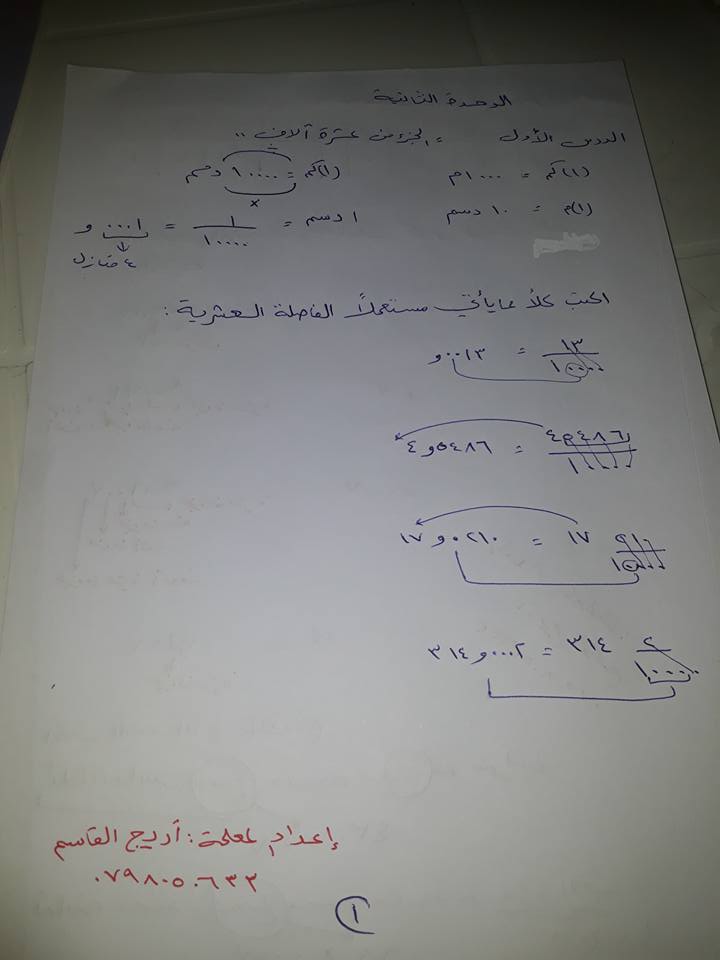 الوحدة الثانية
الدرس الأول = الجزء من عشرة آلاف ..
(١) كم = ١٠٠٠ م (١) كم = ١٠٠٠٠ دسم
÷
×
(١) م = ١٠ دسم ١ دسم = ١/١٠٠٠٠ = ٠٠٠١ و
٤ منازل
اكتب كلاً مما يأتي مستعملاً الفاصلة العشرية :
١٣/١٠٠٠٠ = ٠٠١٣ و
٤٥٤٨٦/١٠٠٠٠ = ٥٤٨٦ و ٤
١٧ ٢١٠/١٠٠٠٠ = ٠٢١٠ و ١٧
٣١٤ ٢/١٠٠٠٠ = ٠٠٠٢ و ٣١٤
إعداد المعلمة : أريج القاسم
٠٧٩٨٠٥٠٦٣٣
١